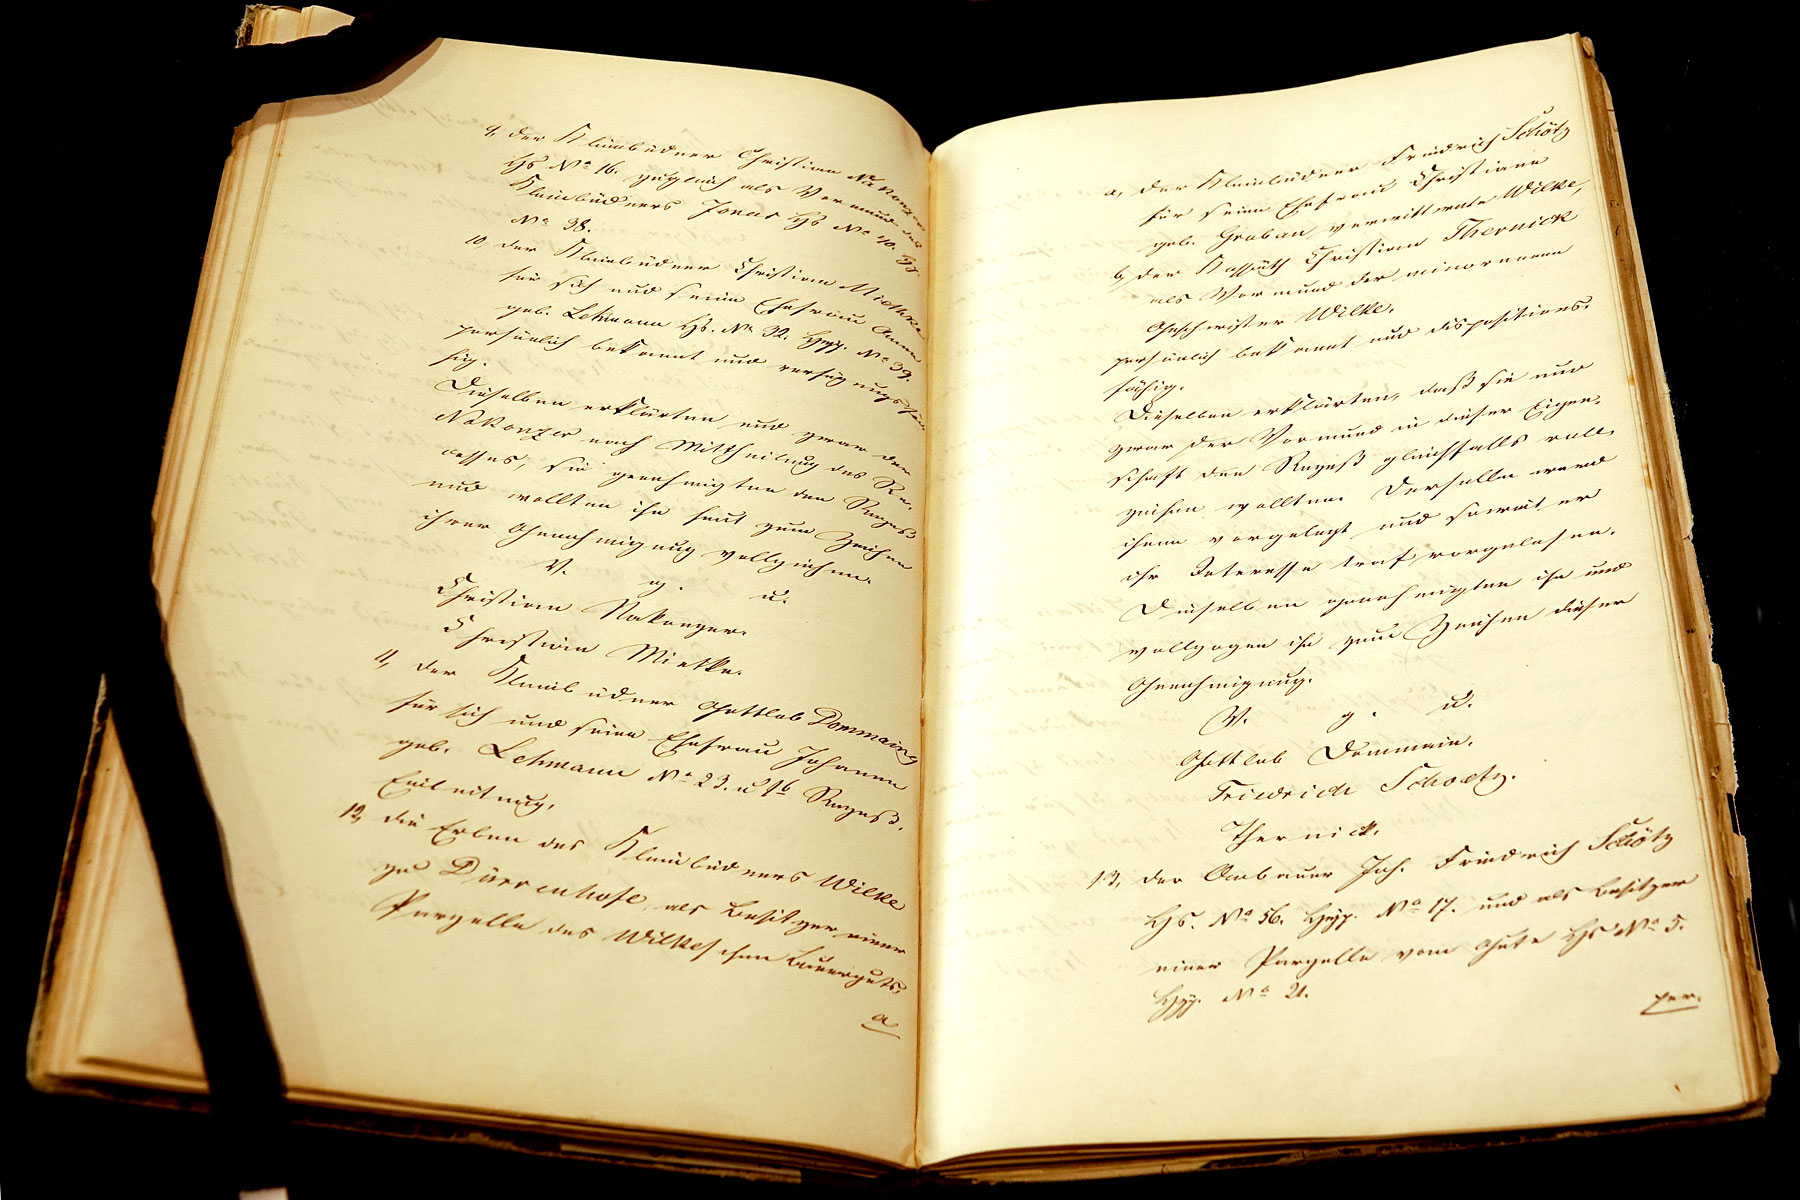 9, der Kleinbüdner Christian Nakonzer
Hs No 16. zugleich als Vormund des
Kleinbüdners Jonas Hs No 40. Hyp
No 38.
10, der Kleinbüdner Christian Miethke
für sich und seine Ehefrau Anna
geb. Lehmann Hs. No 32. Hyp. No 39.
persönlich bekannt und verfügungsfä-
hig.
Dieselben erklärten und zwar der
Nakonzer nach Mittheilung des Re-
cesses, sie genehmigten den Rezeß
und wollten ihn heut zum Zeichen
ihrer Genehmigung vollziehen.
V. g. u.
Christian Nakonzer.
Christian Mietke.
11, der Kleinbüdner Gottlob Dommaing
für sich und seine Ehefrau Johanne
geb. Lehmann No 23. Rezeß.
Einleitung.
12, die Erben des Kleinbüdners Wilke
zu Dürrenhofe, als Besitzer einer
Parzelle des Wilkeschen Bauerguts,
a
a, der Kleinbüdner Friedrich Schötz
für seine Ehefrau Christiane
geb. Graban verwittwete Wilke,
b, der Kossäth Christian Thernick
als Vormund der minorennen
Geschwister Wilke.
persönlich bekannt und dispositions-
fähig.
Dieselben erklärten, daß sie und
zwar der Vormund in dieser Eigen-
schaft den Rezeß gleichfalls voll-
ziehen wollten. Derselbe ward
ihnen vorgelegt und soweit er
ihr Interesse traf vorgelesen.
Dieselben genehmigten ihn und
vollzogen ihn zum Zeichen dieser
Genehmigung.
V. g. u.
Gottlob Dommain.
Friedrich Schoetz.
Thernick.
13, der Anbauer Joh. Friedrich Schötz
Hs. No 56. Hyp. No 17. und als Besitzer
einer Parzelle vom Gute Hs No 5.
Hyp. No 21.
per.